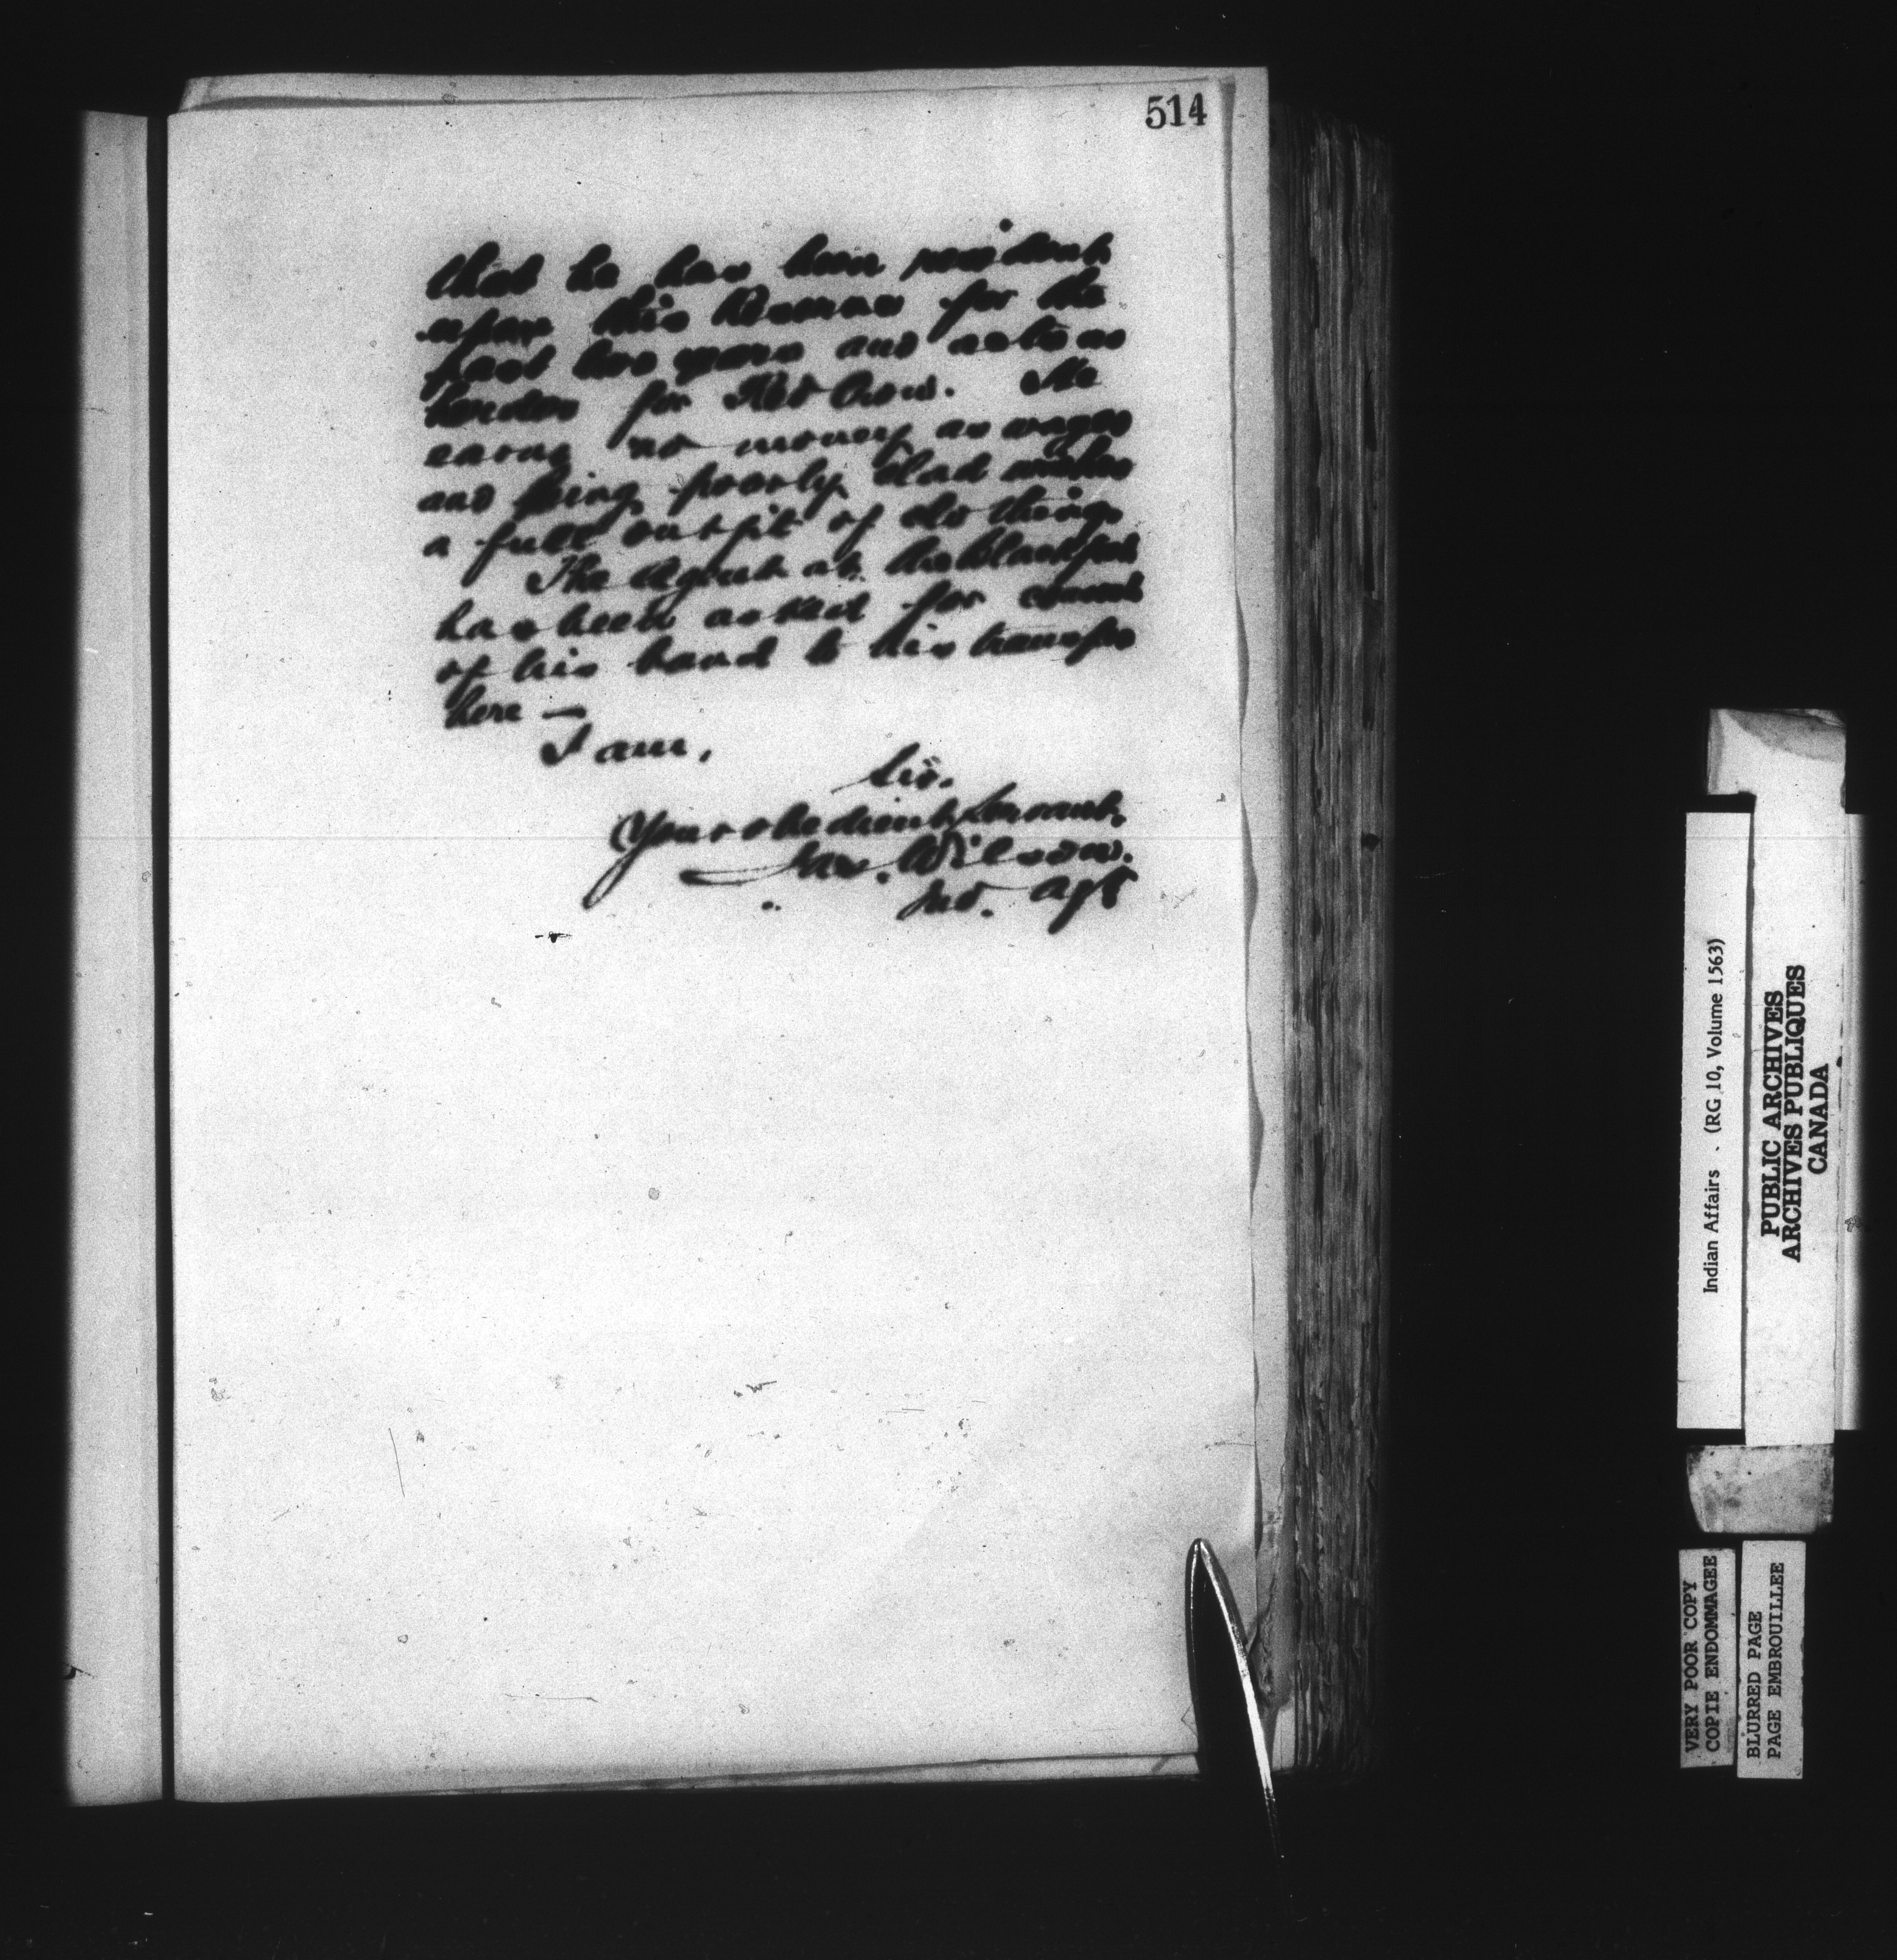 514
that he has been resident
upon this Reserve for the
past two years and acts as
herder for Red Crow. He
earns no money as wages
and being poorly clad wishes
a full outfit of clothing
The Agent at the Blackfoot
has been asked for consent
of his band to his transfer
here —
I am,
Sir.
Your obedient Servant.
Jas. Wilson.
Ind. Agt
Indian Affairs . (RG 10, Volume 1563)
PUBLIC ARCHIVES
ARCHIVES PUBLIQUES
CANADA
VERY POOR COPY
COPIE ENDOMMAGEE
BLURRED PAGE
PAGE EMBROUILLEE